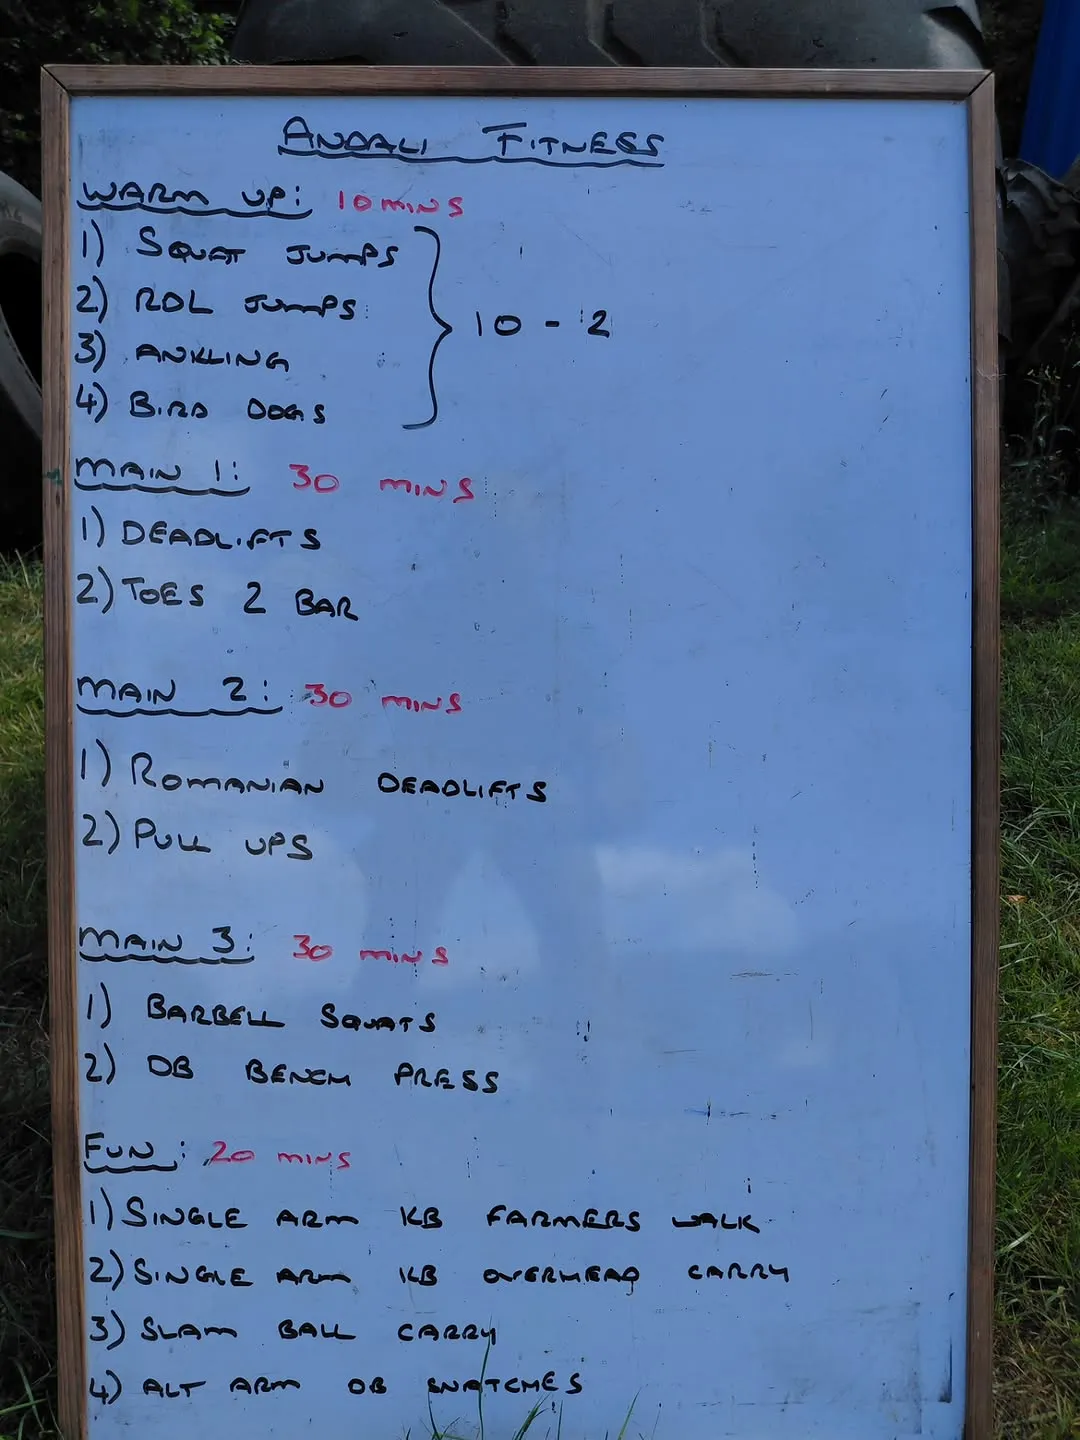 ANDALI FITNESS
WARM UP: 10 MINS
1) SQUAT JUMPS
2) RDL JUMPS
3) ANKLING
4) BIRD DOGS
10 - 2
MAIN 1: 30 MINS
1) DEADLIFTS
2) TOES 2 BAR
MAIN 2: 30 MINS
1) ROMANIAN DEADLIFTS
2) PULL UPS
MAIN 3: 30 MINS
1) BARBELL SQUATS
2) DB BENCH PRESS
FUN: 20 MINS
1) SINGLE ARM KB FARMERS WALK
2) SINGLE ARM KB OVERHEAD CARRY
3) SLAM BALL CARRY
4) ALT ARM DB SNATCHES